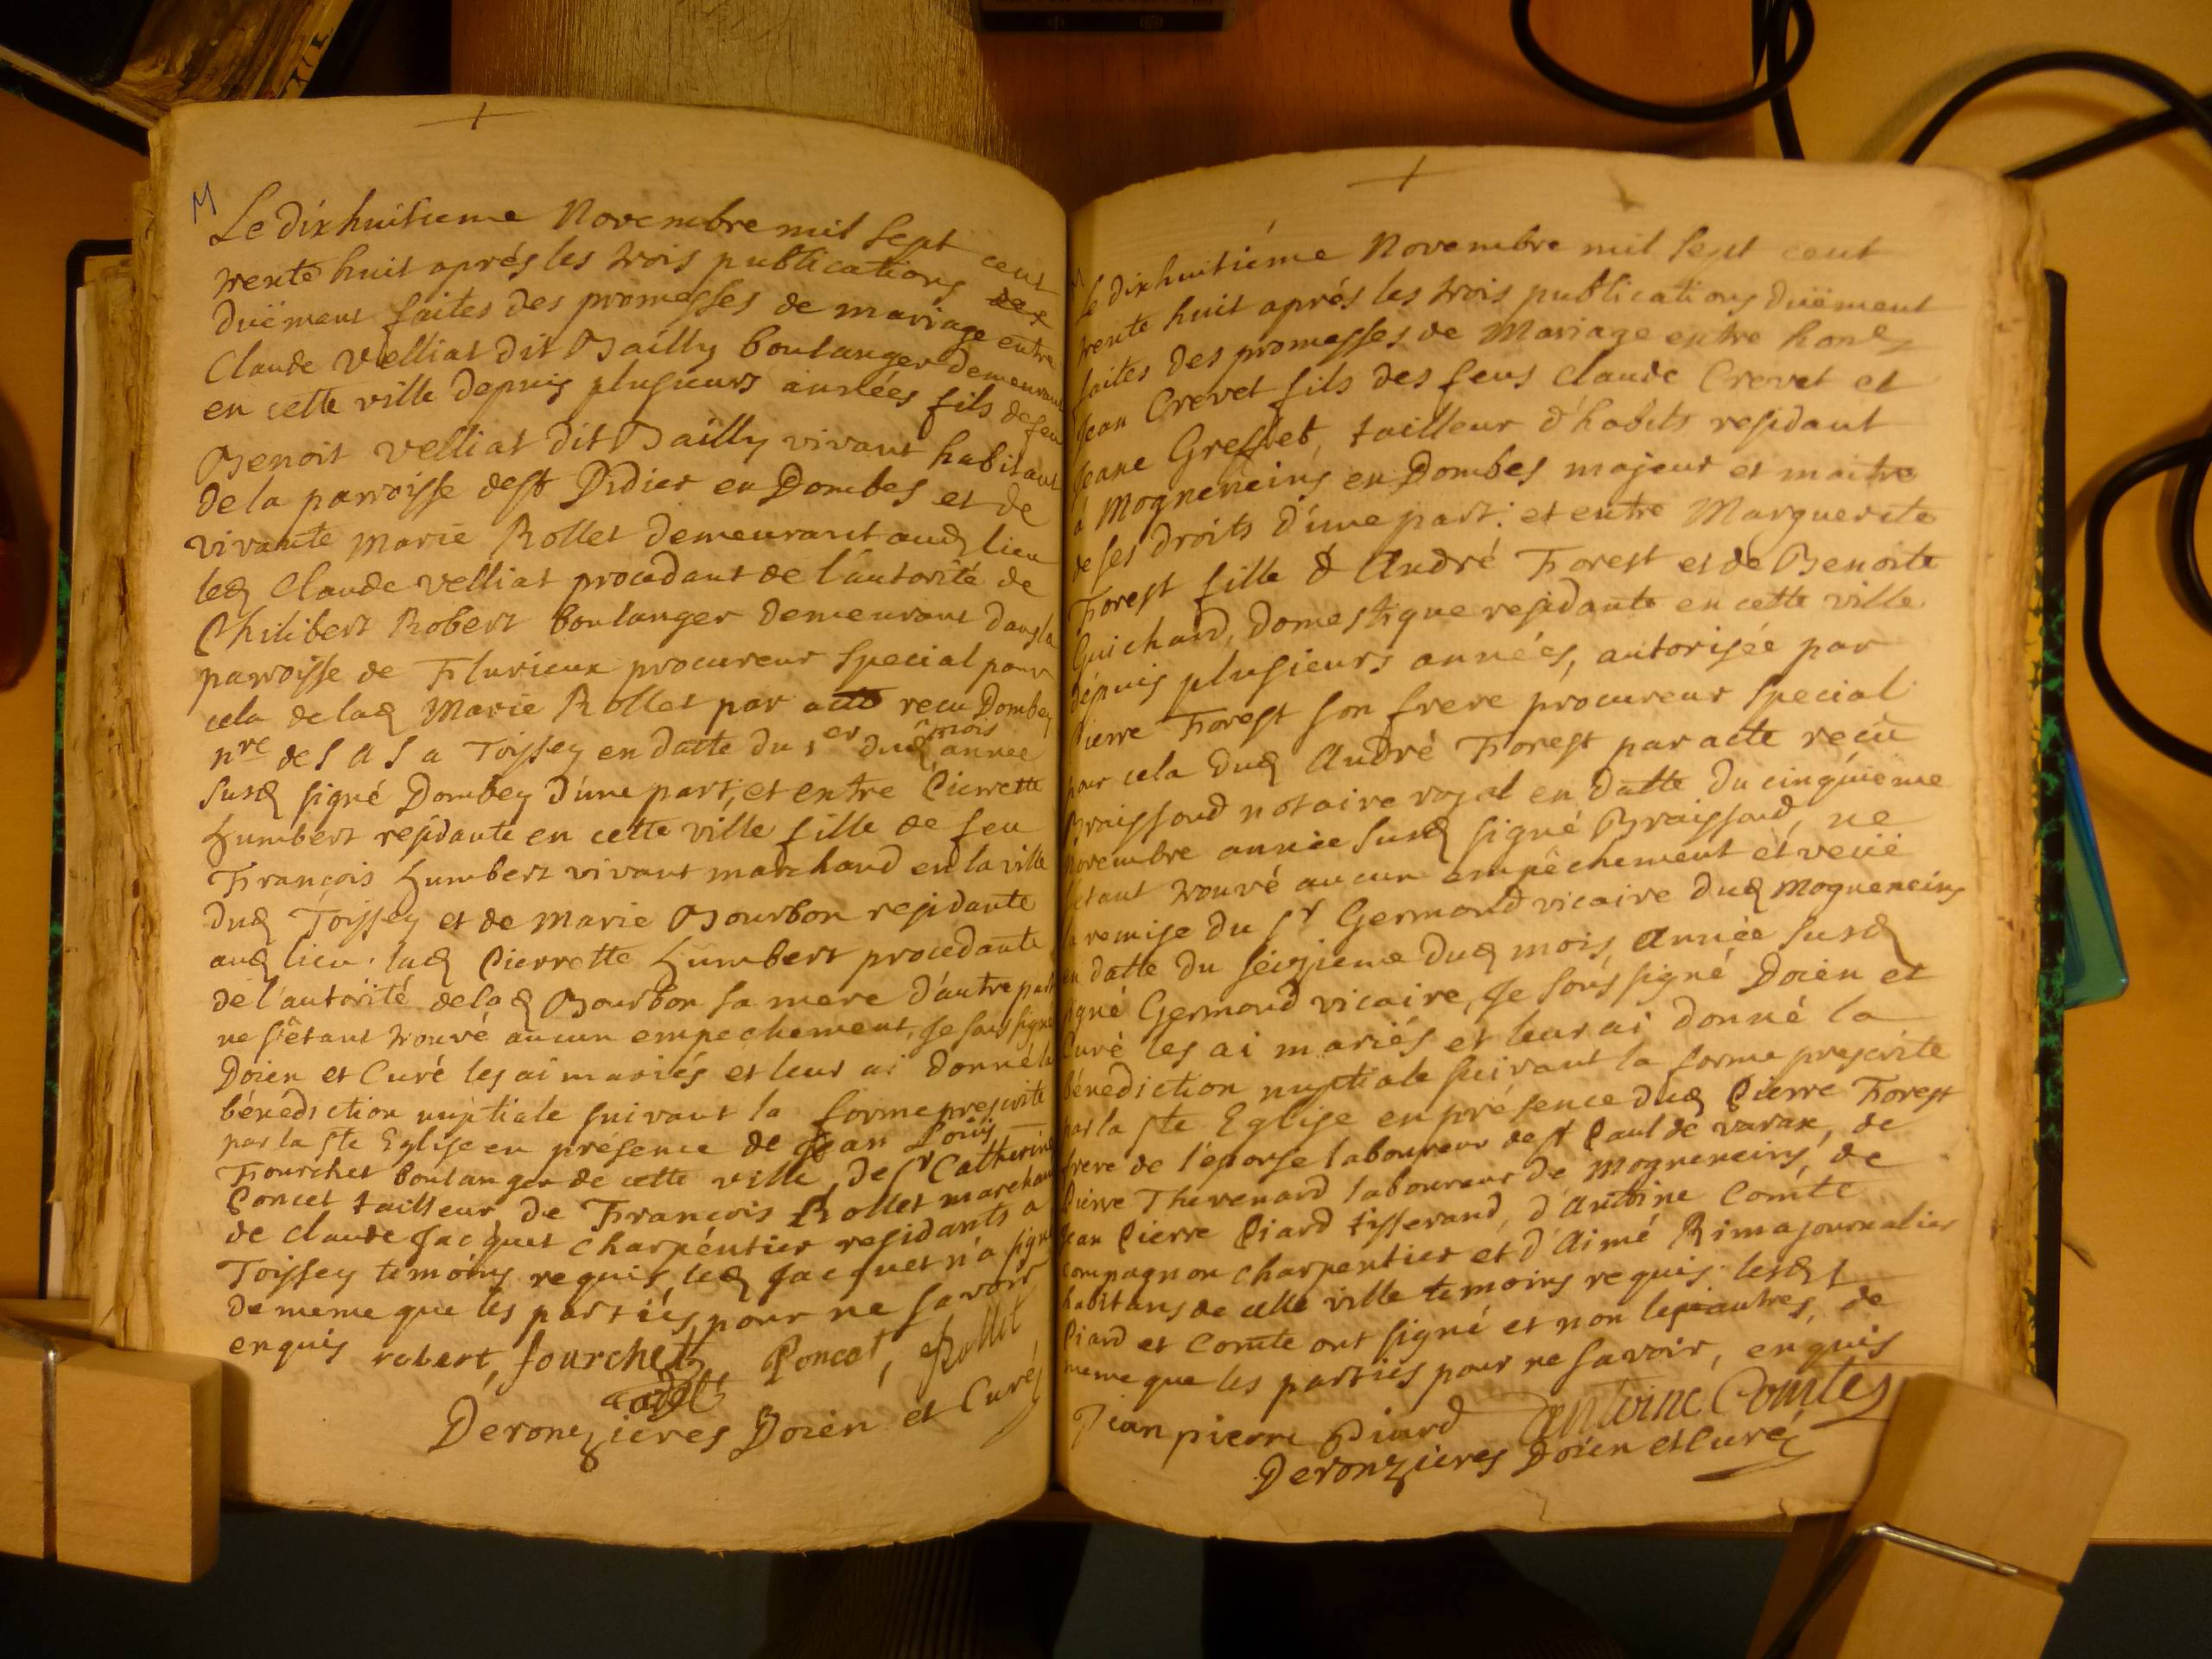 M
Le dixhuitieme Novembre mil sept cent
trente huit aprés les trois publications des
duëment faites des promesses de mariage entre
Claude Velliat dit Bailly boulanger demeurant
en cette ville depuis plusieurs années fils de feu
Benoit Velliat dit Bailly vivant habitant
de la parroisse de st Didier en Dombes et de
vivante Marie Rollet demeurant aud lieu
led Claude Velliat procedant de l'autorité de
Philibert Robert boulanger demeurant dans la
parroisse de Flurieux procureur special pour
cela de lad Marie Rollet par acte recu Dombey
nre de S A S a Toissey en datte du 1er dud mois année
susd signé Dombey d'une part, et entre Pierrette
humbert residante en cette ville fille de feu
François humbert vivant marchand en la ville
dud Toissey et de Marie Bourbon residante
aud lieu. lad Pierrette humbert procedante
de l'autorité de lad Bourbon sa mere d'autre part
ne s'êtant trouvé aucun empechement, Je sous signé
Doïen et Curé les ai mariés et leur ai donné la
bénédiction nuptiale suivant la forme prescrite
par la ste Eglise en présence de Jean Loüis
Fourchet boulanger de cette ville, de sr Catherin
Poncet tailleur de François Rollet marchand
de Claude Jacquet charpentier residants a
Toissey temoins requis, led Jacquet n'a signé
de meme que les partiés pour ne savoir
enquis robert, fourchet, Poncet, Rollet
Deronzieres Doïen et Curé
Le dixhuitiéme Novembre mil sept cent
trente huit aprés les trois publications duëment
faites des promesses de Mariage entre hon
Jean Crevet fils des feus Claude Crevet et
Jeane Greffet, tailleur d'habits residant
à Mogneneins en Dombes majeur et maitre
de ses droits d'une part: et entre Marguerite
Forest fille d André Forest et de Benoite
Guichard, domestique residante en cette ville
dépuis plusieurs années, autorisée par
Pierre Forest son frere procureur special
pour cela dud André Forest par acte recü
Braissoud notaire royal en datte du cinquieme
Novembre année susd signé Braissoud, ne
s'etant trouvé aucun empêchement et veüe
la remise du sr Germond vicaire dud Mogneneins
en datte du seizieme dud mois, année susd
signé Germond vicaire, Je sous signé Doïen et
Curé les ai mariés et leur ai donné la
bénédiction nuptiale suivant la forme prescrite
par la ste Eglise en présence dud Pierre Forest
frere de l'épouse laboureur de st Paul de varax, de
Pierre Thevenard laboureur de Mogneneins, de
Jean Pierre Piard tisserand, d'Antoine Comte
compagnon charpentier et d'Aimé Rima journalier
habitans de cette ville temoins requis. lesd
Piard et Comte ont signé et non les autres, de
meme que les partiés pour ne savoir, enquis
Jean pierre Piard Antoine Comte
Deronzieres Doïen et Curé